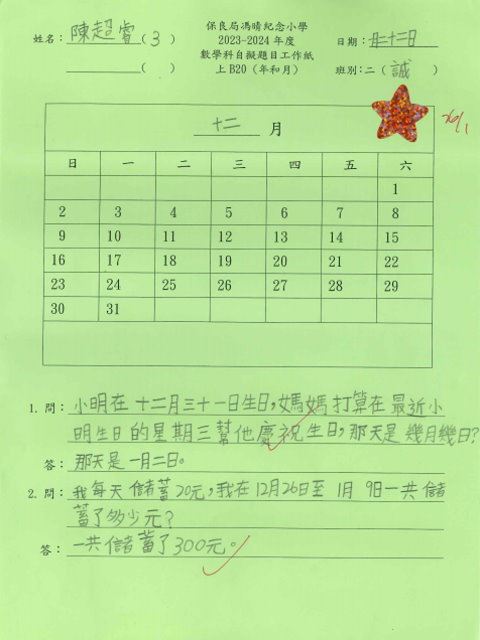 保良局馮晴紀念小學
姓名：陳超睿（3） 2023-2024年度 日期：十二日
（ ） 數學科自擬題目工作紙
上B20（年和月） 班別：二（誠）
26/1
十二 月
日 一 二 三 四 五 六
1
2 3 4 5 6 7 8
9 10 11 12 13 14 15
16 17 18 19 20 21 22
23 24 25 26 27 28 29
30 31
1. 問：小明在十二月三十一日生日，媽媽打算在最近小
明生日的星期三幫他慶祝生日，那天是幾月幾日？
答：那天是一月二日。
2. 問：我每天儲蓄20元，我在12月26日至1月9日一共儲
蓄了多少元？
答：一共儲蓄了300元。